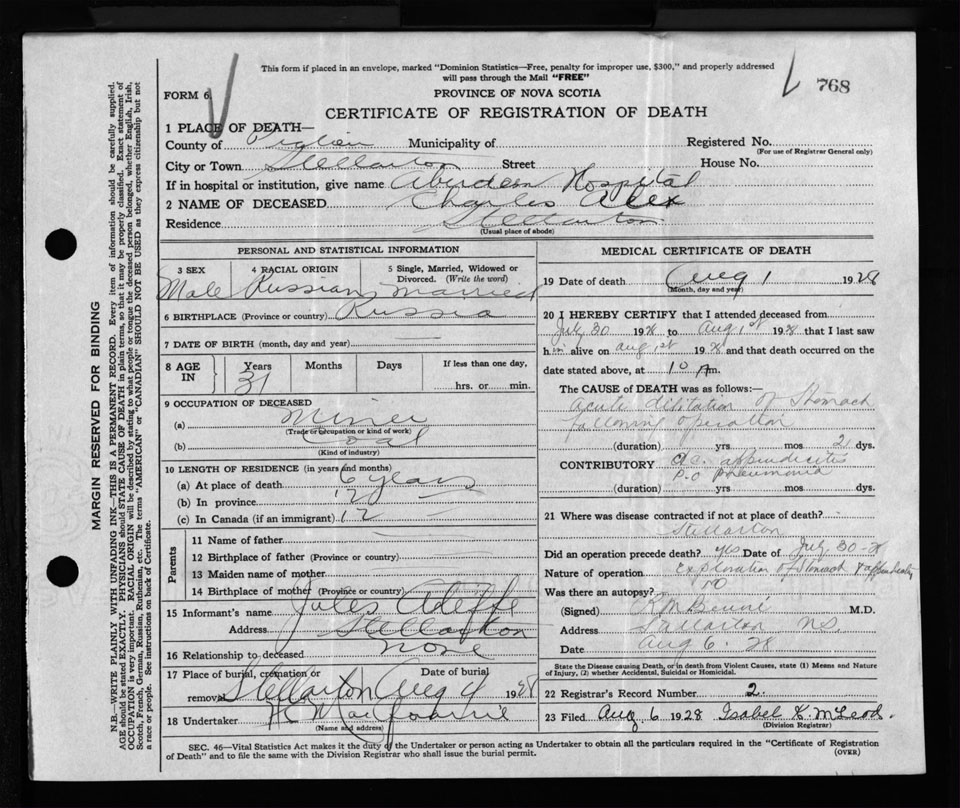 This form if placed in an envelope, marked "Dominion Statistics—Free, penalty for improper use, $300," and properly addressed
will pass through the Mail "FREE"
768
FORM 6.
PROVINCE OF NOVA SCOTIA
CERTIFICATE OF REGISTRATION OF DEATH
1 PLACE OF DEATH—
County of Municipality of Registered No.
(For use of Registrar General only)
City or Town Stellarton Street House No.
If in hospital or institution, give name Aberdeen Hospital
2 NAME OF DECEASED Charles Alex
Residence Stellarton
(Usual place of abode)
PERSONAL AND STATISTICAL INFORMATION
3 SEX 4 RACIAL ORIGIN 5 Single, Married, Widowed or
Divorced. (Write the word)
Male Russian Married
6 BIRTHPLACE (Province or country) Russia
7 DATE OF BIRTH (month, day and year)
8 AGE IN Years Months Days If less than one day,
31 hrs. or min.
9 OCCUPATION OF DECEASED
(a) Miner
(Trade or occupation or kind of work)
(b) Coal
(Kind of industry)
10 LENGTH OF RESIDENCE (in years and months)
(a) At place of death 6 years
(b) In province 12
(c) In Canada (if an immigrant) 12
Parents
11 Name of father
12 Birthplace of father (Province or country)
13 Maiden name of mother
14 Birthplace of mother (Province or country)
15 Informant's name Jules
Address Stellarton
16 Relationship to deceased none
17 Place of burial, cremation or Date of burial
removal Stellarton Aug 4 1928
18 Undertaker
(Name and address)
MEDICAL CERTIFICATE OF DEATH
19 Date of death Aug 1 1928
(Month, day and year)
20 I HEREBY CERTIFY that I attended deceased from
July 30 1928 to Aug 1st 1928 that I last saw
him alive on Aug 1st 1928 and that death occurred on the
date stated above, at 10 A.m.
The CAUSE of DEATH was as follows:—
Acute dilitation of Stomach
following operation
(duration) yrs mos 2 dys.
CONTRIBUTORY appendicitis
P.O pneumonia
(duration) yrs. mos dys.
21 Where was disease contracted if not at place of death?
Stellarton
Did an operation precede death? yes Date of July 30-28
Nature of operation Exploration of Stomach
Was there an autopsy? no
(Signed) M.D.
Address Stellarton N.S.
Date Aug 6. 28
State the Disease causing Death, or in death from Violent Causes, state (1) Means and Nature
of Injury, (2) whether Accidental, Suicidal or Homicidal.
22 Registrar's Record Number 2.
23 Filed Aug 6 1928 Isobel K. McLeod.
(Division Registrar)
SEC. 46—Vital Statistics Act makes it the duty of the Undertaker or person acting as Undertaker to obtain all the particulars required in the "Certificate of Registration
of Death" and to file the same with the Division Registrar who shall issue the burial permit.
(OVER)
MARGIN RESERVED FOR BINDING
N.B.—WRITE PLAINLY WITH UNFADING INK—THIS IS A PERMANENT RECORD. Every item of information should be carefully supplied.
AGE should be stated EXACTLY. PHYSICIANS should STATE CAUSE OF DEATH in plain terms, so that it may be properly classified. Exact statement of
OCCUPATION is very important. RACIAL ORIGIN will be described by stating to what people or tongue the deceased person belonged, whether English, Irish,
Scotch, French, German, Russian, Ruthenian, etc. The terms "AMERICAN" or "CANADIAN" SHOULD NOT BE USED as they express citizenship but not
a race or people. See instructions on back of Certificate.